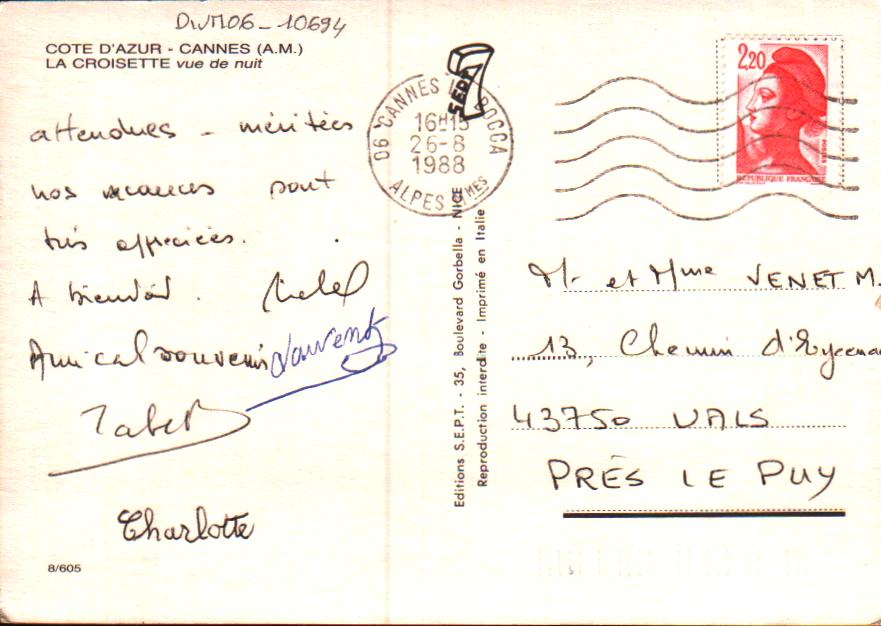 DWM06-10694
COTE D'AZUR - CANNES (A.M.)
LA CROISETTE vue de nuit
attendues - méritées
nos vacances sont
très appréciées.
A bientôt. Michel
Amical souvenir Laurent
Charlotte
8/605
SEPT
06 CANNES LA BOCCA
16H15
26-8
1988
ALPES MMES
Editions S.E.P.T. - 35, Boulevard Gorbella - NICE
Reproduction interdite - Imprimé en Italie
2,20
REPUBLIQUE FRANÇAISE
POSTES
Mr et Mme VENET M.
13, Chemin
43750 VALS
PRÈS LE PUY